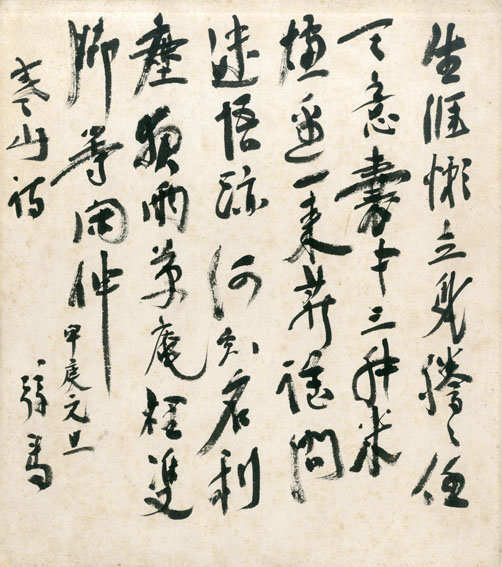 生涯懶立身騰々任
天意嚢中三升米
爐邊一束薪誰問
迷悟跡何知名利
塵夜雨草庵裡雙
脚等閑伸
元旦
寒山詩
書